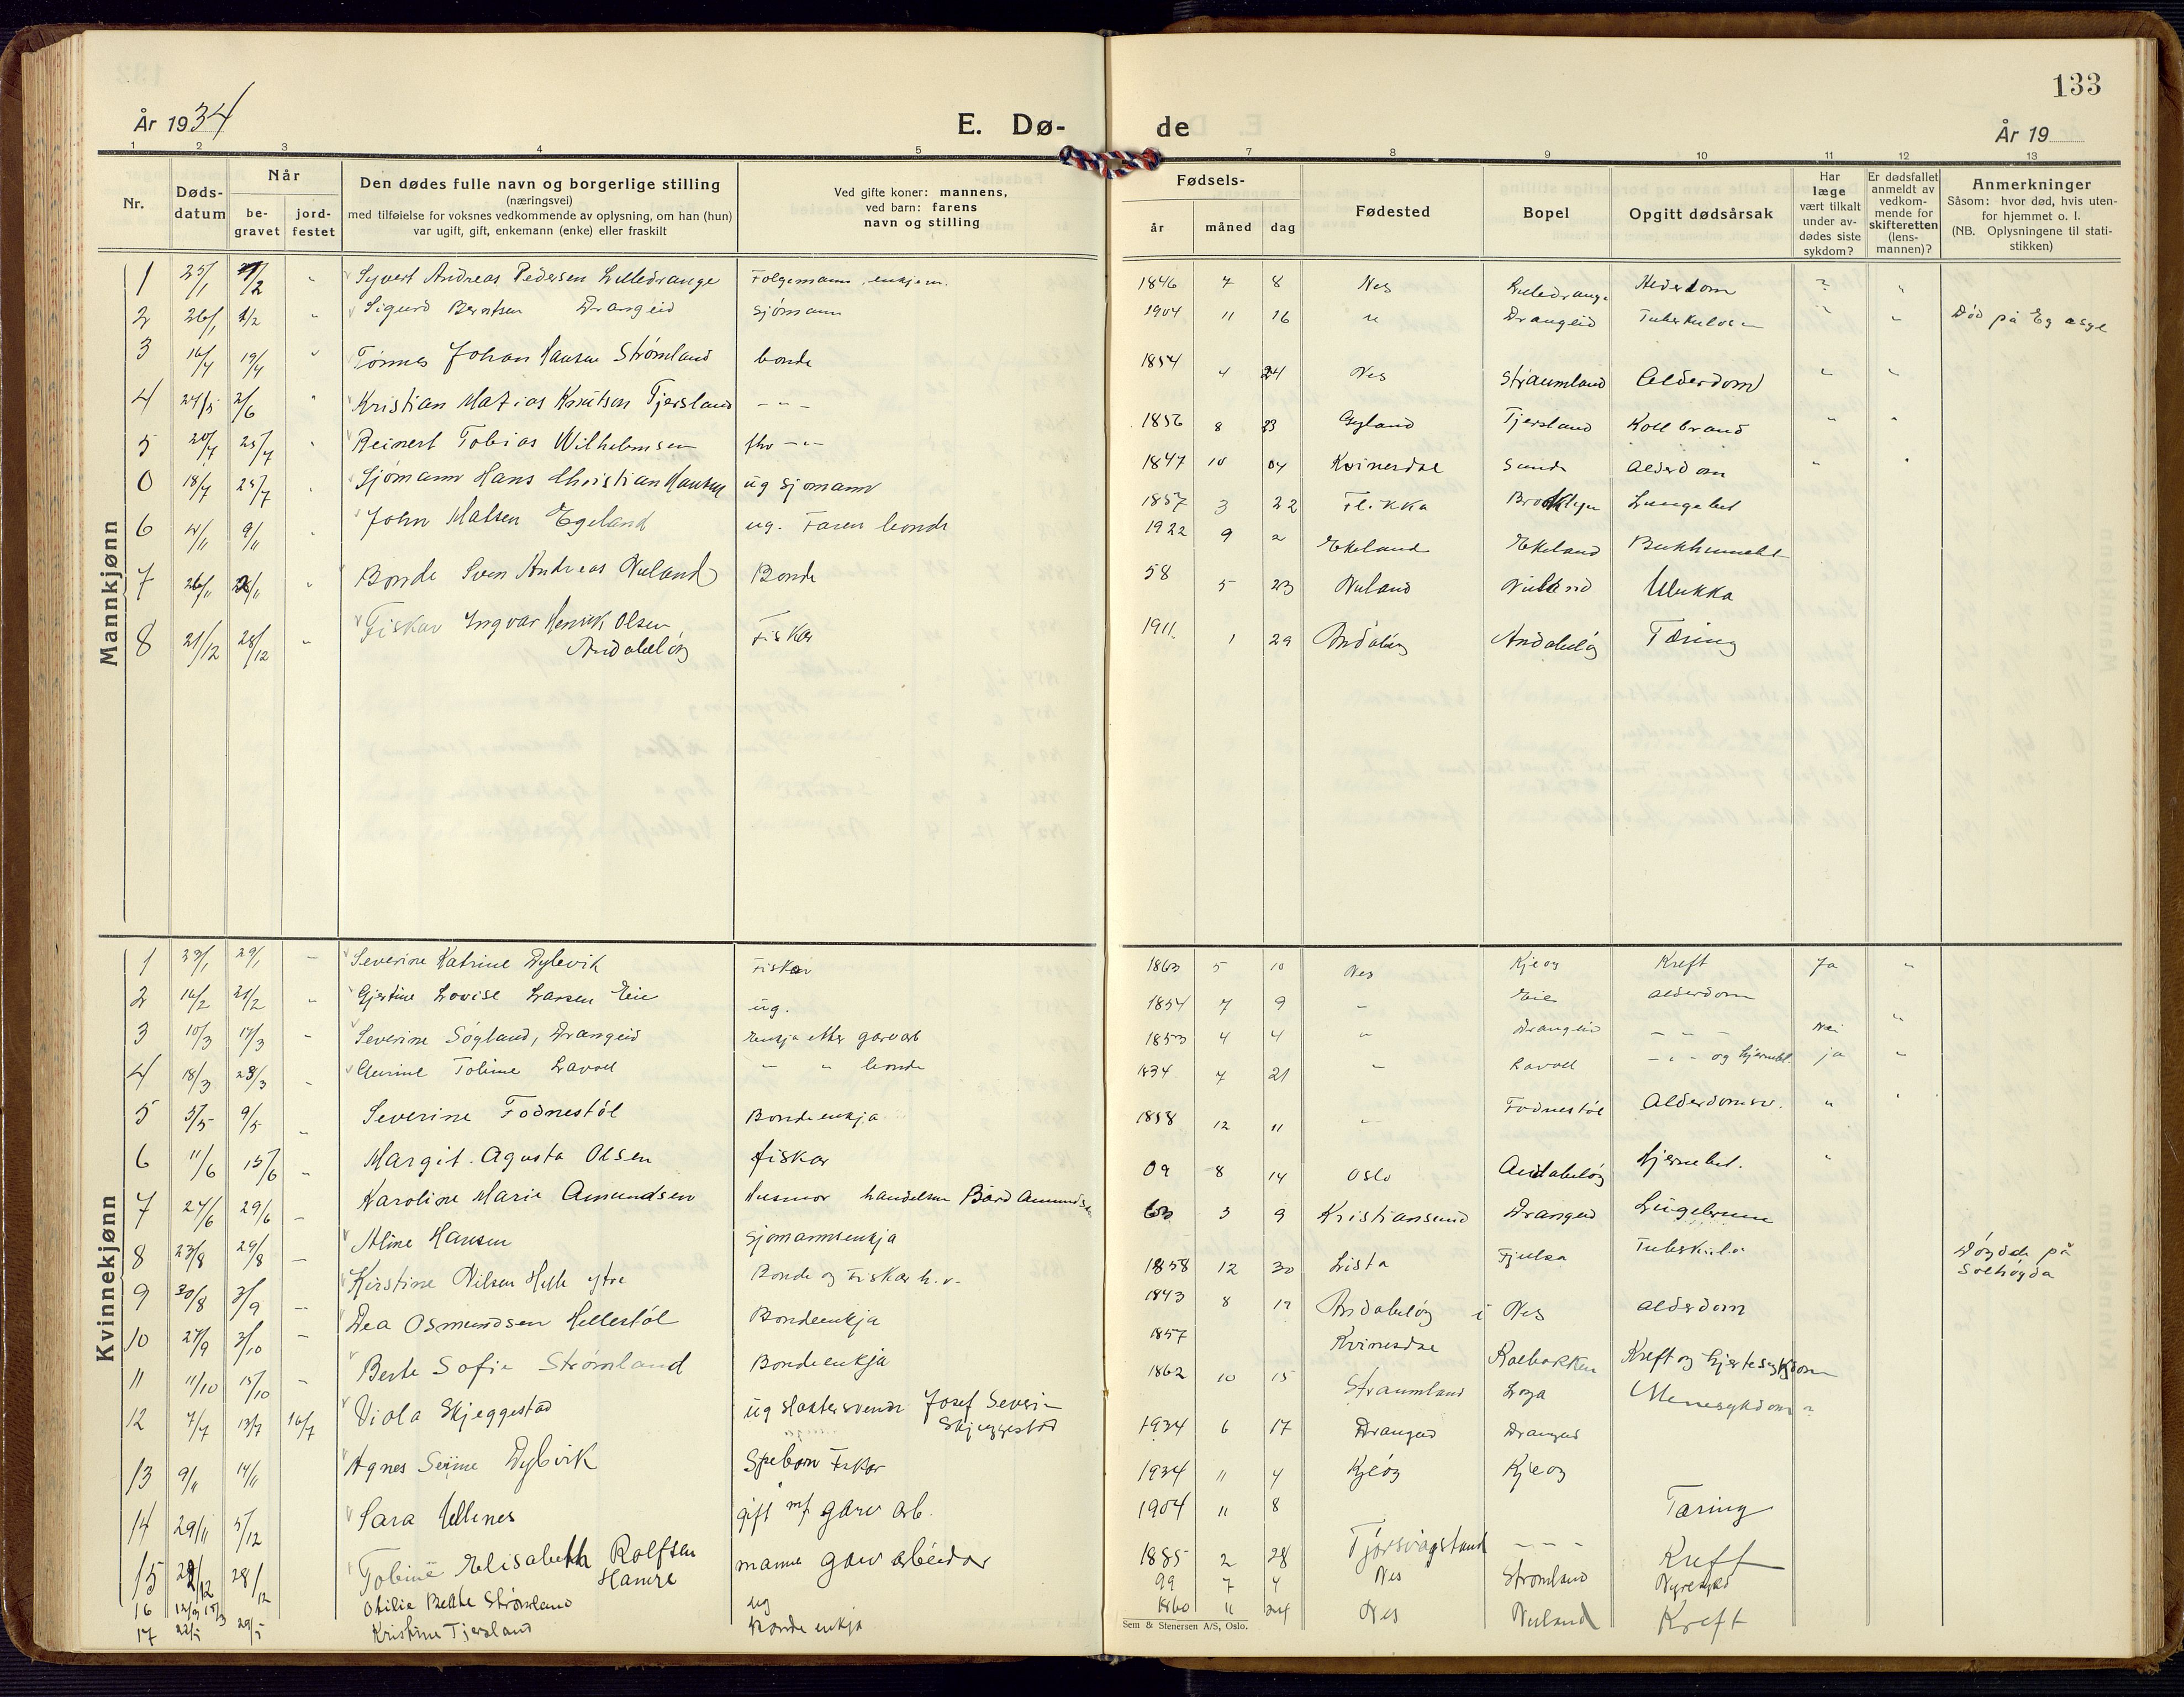 År 1934
E. Dø-
1 2 3 4 5
Nr.
Døds-
datum
Når
be-
gravet
jord-
festet
Den dødes fulle navn og borgerlige stilling
(næringsvei)
med tilføielse for voksnes vedkommende av oplysning, om han (hun)
var ugift, gift, enkemann (enke) eller fraskilt
Ved gifte koner: mannens,
ved barn: farens
navn og stilling
Mannkjønn
1 25/1 Syvert Andreas Pedersen Lilledrange Følgemann, enkjem.
2 26/1 1/2 Sigurd Berntsen Drangeid sjømann
3 16/4 19/4 Tønnes Johan Hansen Strømland bonde
4 24/5 2/6 Kristian Matias Knutson Tjersland - - -
5 20/7 25/7 Reinert Tobias Wilhelmsen fhv - - -
0 18/7 25/7 Sjømann Hans Christian Hansen ug sjømann
6 4/11 9/11 John Matsen Egeland ug. Faren bonde
7 26/11 Bonde Sven Andreas Nuland Bonde
8 21/12 28/12 Fiskar Ingvar Henrik Olsen Fiskar
Andabeløy
Kvinnekjønn
1 23/1 29/1 Severine Katrine Dybvik Fiskar
2 16/2 21/2 Gjertine Lovise Larsen Eie ug.
3 10/3 17/3 Severine Søgland, Drangeid Enkja etter garvarb
4 18/3 23/3 Tobine Lavoll - " bonde
5 3/5 9/5 Severine Fodnestøl Bondeenkja
6 11/6 15/6 Margit. Agusta Olsen fiskar
7 24/6 29/6 Karoline Marie Amundsen Husmor handelsm Bård Amundsen
8 23/8 29/8 Aline Hansen Sjømannsenkja
9 30/8 3/9 Kirstine Nilsen Hylle ytre Bonde og Fiskar h. v.
10 27/9 3/10 Dea Osmundsen Hellestøl Bondeenkja
11 11/10 15/10 Berte Sofie Strømland Bondeenkja
12 7/7 13/7 16/7 Viola Skjeggestad ug slaktersvenn Josef Severin
Skjeggestad
13 9/11 14/11 Agnes Dybvik Spebarn Fiskar
14 29/11 5/12 Sara Ullenes gift m/ garv arb.
15 28/12 Tobine Elisabeth Rolfsen manne garv arbeidar
Hamre
16 12/3 15/3 Otilie Beate Strømland ug
17 22/5 29/5 Kristine Tjersland Bonde enkja
133
de
År 19
7 8 9 10 11 12 13
Fødsels-
år måned dag
Fødested
Bopel
Opgitt dødsårsak
Har
læge
vært tilkalt
under av-
dødes siste
sykdom?
Er dødsfallet
anmeldt av
vedkom-
mende for
skifteretten
(lens-
mannen)?
Anmerkninger
Såsom: hvor død, hvis uten-
for hjemmet o. l.
(NB. Oplysningene til stati-
stikken)
1846 7 8 Nes Lilledrange Alderdom ? "
1904 11 16 " Drangeid Tuberkulose " " Død på Eg asyl
1854 4 24 Nes Straumland Alderdom " "
1856 8 23 Gyland Tjersland Kollbrand " "
1847 10 04 Kvinesdal Sunde Alderdom " "
1857 3 22 Flikka Brooklyn Lungebet
1922 9 2 Ekeland Ekeland Bukhinnebet
58 5 23 Nuland Nuland Ulukka
1911 1 29 Andabeløy Andabeløy Tæring
1863 5 10 Nes Kjeøy Kreft Ja "
1854 7 9 - Eie alderdom "
1853 4 4 " Drangeid - - - Nei
1834 7 21 - Lavoll - " - og hjernebl. ja "
1858 12 11 " Fodnestøl Alderdomsv. " "
09 8 14 Oslo Andabeløy hjernebet. "
63 3 9 Kristiansund Drangeid
1858 12 30 Lista Fjelsa Tuberkulo Døydde på
Solhøgda
1843 8 12 Andabeløy i Nes alderdom
1857 Kvinesdal Kreft og hjertesykdom
1862 10 15 Straumland Loga
1934 6 17 Drangeid Drangeid
1934 11 4 Kjeøy Kjeøy
1904 11 8 Tæring
1885 2 28 Tjørsvågstrand - - - Kreft
99 7 4 Nes Strømland Nyresykd
1860 11 24 Nes Nuland Kreft
Sem & Stenersen A/S, Oslo.